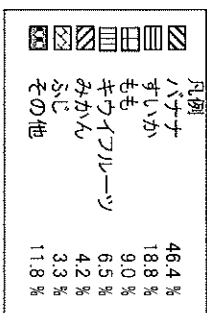 凡例
バナナ 46.4 %
すいか 18.8 %
もも 9.0 %
キウイフルーツ 6.5 %
みかん 4.2 %
ふじ 3.3 %
その他 11.8 %